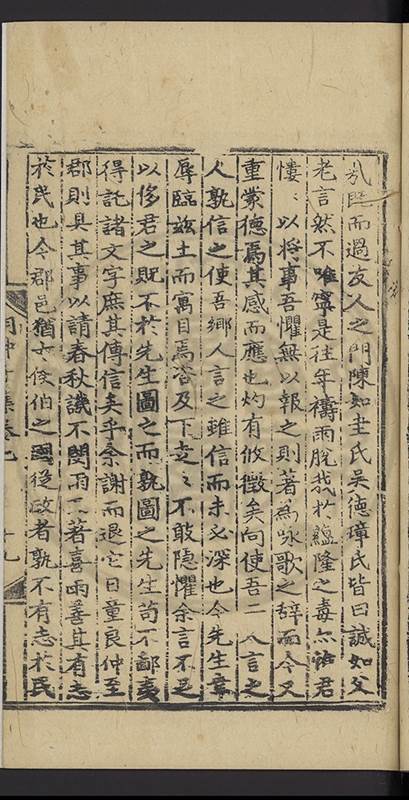 氛臨而過友人之門陳如圭氏吳德璋氏皆曰誠如父
老言然不唯寧是往年禱雨脫我於蘊隆之毒亦治君
慺〻以將事吾懼無以報之則著為咏歌之辞而今又
重蒙德焉其感而應也灼有攸徵矣向使吾二三人言之
人孰信之使吾鄉人言之雖信而未必深也今先生幸
辱臨茲土而寓目焉咨及下走〻不敢隱懼余言不足
以侈君之貺不於先生圖之而孰圖之先生苟不鄙夷
得託諸文字庶其傳信矣乎余謝而退它日童良仲至
郡則具其事以請春秋譏不閔雨而著喜雨善其有志
於民也今郡邑猶古侯伯之國後政者孰不有志於民